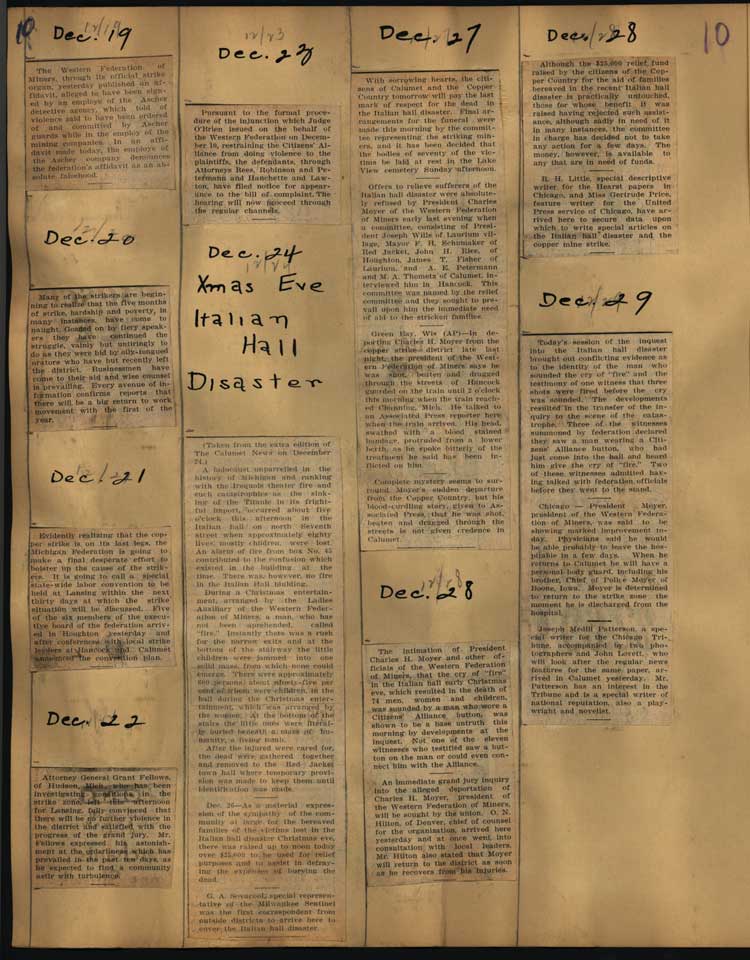 10
Dec. 19
The Western Federation of
Miners, through its official strike
organ, yesterday published an af-
fidavit, alleged to have been sign-
ed by an employe of the Ascher
detective agency, which told of
violence said to have been ordered
of and committed by Ascher
guards while in the employ of the
mining companies. In an affi-
davit made today, the employe of
the Ascher company denounces
the federation's affidavit as an ab-
solute falsehood.
Dec. 20
Many of the strikers are begin-
ning to realize that the five months
of strike, hardship and poverty, in
many instances, have come to
naught. Goaded on by fiery speak-
ers they have continued the
struggle, vainly but untiringly to
do as they were bid by oily-tongued
orators who have but recently left
the district. Businessmen have
come to their aid and wise counsel
is prevailing. Every avenue of in-
formation confirms reports that
there will be a big return to work
movement with the first of the
year.
Dec. 21
Evidently realizing that the cop-
per strike is on its last legs, the
Michigan Federation is going to
make a final desperate effort to
bolster up the cause of the strik-
ers. It is going to call a special
state-wide labor convention to be
held at Lansing within the next
thirty days at which the strike
situation will be discussed. Five
of the six members of the execu-
tive board of the federation arriv-
ed in Houghton yesterday and
after conferences with local strike
leaders at Hancock and Calumet
announced the convention plan.
Dec. 22
Attorney General Grant Fellows,
of Hudson, Mich. who has been
investigating conditions in the
strike zone, left this afternoon
for Lansing, fully convinced that
there will be no further violence in
the district and satisfied with the
progress of the grand jury. Mr.
Fellows expressed his astonish-
ment at the orderliness which has
prevailed in the past few days, as
he expected to find a community
astir with turbulence.
12/23
Dec. 23
Pursuant to the formal proce-
dure of the injunction which Judge
O'Brien issued on the behalf of
the Western Federation on Decem-
ber 10, restraining the Citizens' Al-
liance from doing violence to the
plaintiffs, the defendants, through
Attorneys Rees, Robinson and Pe-
termann and Hanchette and Law-
ton, have filed notice for appear-
ance to the bill of complaint. The
hearing will now proceed through
the regular channels.
Dec. 24
12/24
Xmas Eve
Italian
Hall
Disaster
(Taken from the extra edition of
The Calumet News on December
24.)
A holocaust unparrelled in the
history of Michigan and ranking
with the Iroquois theater fire and
such catastrophies as the sink-
ing of the Titanic in its fright-
ful import, occurred about five
o'clock this afternoon in the
Italian hall on north Seventh
street when approximately eighty
lives, mostly children, were lost.
An alarm of fire from box No. 45
contributed to the confusion which
existed in the building at the
time. There was, however, no fire
in the Italian Hall blulding.
During a Christmas entertain-
ment, arranged by the Ladies
Auxiliary of the Western Feder-
ation of Miners, a man, who has
not been aprehended, called
"fire." Instantly there was a rush
for the narrow exits and at the
bottom of the stairway the little
children were jammed into one
solid mass, from which none could
emerge. There were approximately
600 persons, about ninety-five per
cent of whom were children, in the
hall during the Christmas enter-
tainment, which was arranged by
the women. At the bottom of the
stairs the little ones were literal-
ly buried beneath a mass of hu-
manity, a living tomb.
After the injured were cared for,
the dead were gathered together
and removed to the Red Jacket
town hall where temporary provi-
sion was made to keep them until
identification was made.
Dec. 26—As a material expres-
sion of the sympathy of the com-
munity at large for the bereaved
families of the victims lost in the
Italian hall disaster Christmas eve,
there was raised up to noon today
over $25,000 to be used for relief
purposes and to assist in defray-
ing the expenses of burying the
dead.
G. A. Sevacool, special represen-
tative of the Milwaukee Sentinel
was the first correspondent from
outside districts to arrive here to
cover the Italian hall disaster.
Dec. 27
With sorrowing hearts, the citi-
zens of Calumet and the Copper
Country tomorrow will pay the last
mark of respect for the dead in
the Italian hall disaster. Final ar-
rangements for the funeral were
made this morning by the commit-
tee representing the striking min-
ers, and it has been decided that
the bodies of seventy of the vic-
tims be laid at rest in the Lake
View cemetery Sunday afternoon.
Offers to relieve sufferers of the
Italian hall disaster were absolute-
ly refused by President Charles
Moyer of the Western Federation
of Miners early last evening when
a committee, consisting of Presi-
dent Joseph Wills of Laurium vil-
lage, Mayor F. H. Schumaker of
Red Jacket, John H. Rice, of
Houghton, James T. Fisher of
Laurium, and A. E. Petermann
and M. A. Thometz of Calumet, in-
terviewed him in Hancock. This
committee was named by the relief
committee and they sought to pre-
vail upon him the immediate need
of aid to the stricken families.
Green Bay, Wis (AP)—In de-
porting Charles H. Moyer from the
copper strike district late last
night, the president of the West-
ern Federation of Miners says he
was shot, beaten and drugged
through the streets of Hancock
guarded on the train until 2 o'clock
this morning when the train reach-
ed Channing, Mich. He talked to
an Associated Press reporter here
when the train arrived. His head,
swathed with a blood stained
bandage, protruded from a lower
berth, as he spoke bitterly of the
treatment he said has been in-
flicted on him.
Complete mystery seems to sur-
round Moyer's sudden departure
from the Copper Country, but his
blood-curdling story, given to As-
sociated Press, that he was shot,
beaten and dragged through the
streets is not given credence in
Calumet.
12/28
Dec. 28
The intimation of President
Charles H. Moyer and other of-
ficials of the Western Federation
of Miners, that the cry of "fire"
in the Italian hall early Christmas
eve, which resulted in the death of
74 men, women and children,
was sounded by a man who wore a
Citizens' Alliance button, was
shown to be a base untruth this
morning by developments at the
inquest. Not one of the eleven
witnesses who testified saw a but-
ton on the man or could even con-
nect him with the Alliance.
An immediate grand jury inquiry
into the alleged deportation of
Charles H. Moyer, president of
the Western Federation of Miners,
will be sought by the union. O. N.
Hilton, of Denver, chief of counsel
for the organization, arrived here
yesterday and at once went into
consultation with local leaders.
Mr. Hilton also stated that Moyer
will return to the district as soon
as he recovers from his injuries.
Dec. 28
10
Although the $25,000 relief fund
raised by the citizens of the Cop-
per Country for the aid of families
bereaved in the recent Italian hall
disaster is practically untouched,
those for whose benefit it was
raised having rejected such assist-
ance, although sadly in need of it
in many instances, the committee
in charge has decided not to take
any action for a few days. The
money, however, is available to
any that are in need of funds.
R. H. Little, special descriptive
writer for the Hearst papers in
Chicago, and Miss Gertrude Price,
feature writer for the United
Press service of Chicago, have ar-
rived here to secure data upon
which to write special articles on
the Italian hall disaster and the
copper mine strike.
Dec. 29
Today's session of the inquest
into the Italian hall disaster
brought out conflicting evidence as
to the identity of the man who
sounded the cry of "fire" and the
testimony of one witness that three
shots were fired before the cry
was sounded. The developments
resulted in the transfer of the in-
quiry to the scene of the catas-
trophe. Three of the witnesses
summoned by federation declared
they saw a man wearing a Citi-
zens' Alliance button, who had
just come into the hall and heard
him give the cry of "fire." Two
of these witnesses admitted hav-
ing talked with federation officials
before they went to the stand.
Chicago — President Moyer,
president of the Western Federa-
tion of Miners, was said to be
showing marked improvement to-
day. Physicians said he would
be able probably to leave the hos-
pital in a few days. When he
returns to Calumet he will have a
personal body guard, including his
brother, Chief of Police Moyer of
Boone, Iowa. Moyer is determined
to return to the strike zone the
moment he is discharged from the
hospital.
Joseph Medill Patterson, a spe-
cial writer for the Chicago Tri-
bune, accompanied by two pho-
tographers and John Lovett, who
will look after the regular news
features for the same paper, ar-
rived in Calumet yesterday. Mr.
Patterson has an interest in the
Tribune and is a special writer of
national reputation, also a play-
wright and novelist.